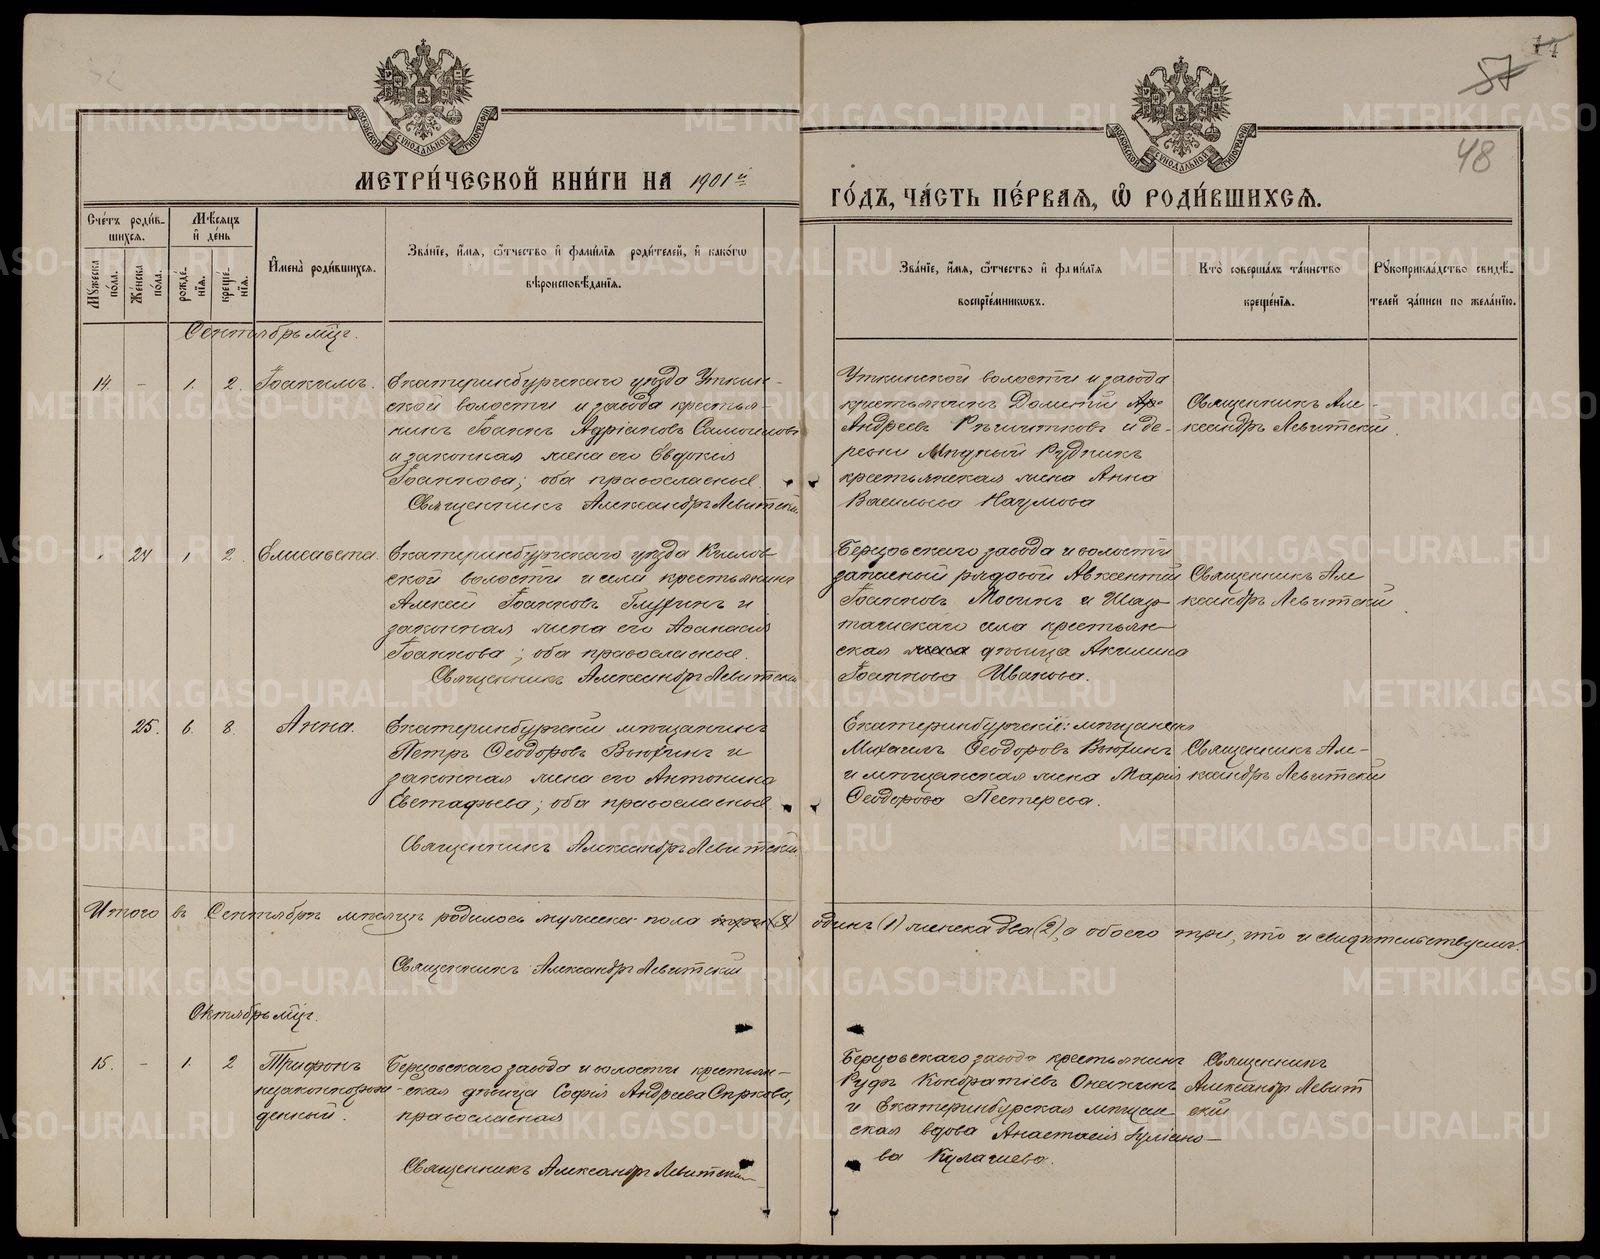 57
48
МЕТРИ́ЧЕСКОЙ КНИ́ГИ НА 1901й
ГО́ДЪ, ЧА́СТЬ ПЕ́РВАЯ, Ѽ РОДИ́ВШИХСЯ.
Сче́тъ роди́в-
шихся.
Мѣ́сяцъ
и̂ де́нь
Му́жеска
по́ла.
Же́нска
по́ла.
рожде́-
нїя.
креще́-
нїя.
И̂мена̀ роди́вшихся.
Зва́нїе, и́мя, ѻ́тчество и̂ фами́лїя роди́телей, и̂ како́гѡ
вѣроисповѣ́данїя.
Зва́нїе, и́мя, ѻ́тчество и̂ фами́лїя
воспрїе́мникѡвъ.
Кто̀ соверша́лъ та́инство
креще́нїя.
Рꙋкоприкла́дство свидѣ́-
телей за́писи по жела́нїю.
Сентябрь мцъ.
14. - 1. 2. Іоакимъ.
Екатеринбургскаго уѣзда Уткин-
ской волости и завода крестья-
нинъ Іоаннъ Адріановъ Самойловъ
и законная жена его Евдокія
Іоаннова; оба православные.
Священникъ Александръ Левитскій
Уткинской волости и завода
крестьянинъ Дометій
Андреевъ Рѣшитковъ и де-
ревни Мѣдный Рудникъ
крестьянская жена Анна
Васильева Наумова
Священникъ Але-
ксандръ Левитскій.
24 1. 2. Елисавета.
Екатеринбургскаго уѣзда
ской волости и села крестьянинъ
Алексій Іоанновъ Глухихъ и
законная жена его Аѳанасія
Іоаннова; оба православные.
Священникъ Александръ Левитскій
Березовскаго завода и волости
запасный рядовой Авксентій
Іоанновъ Мосинъ и Шар-
ташскаго села крестьян-
ская жена дѣвица Акилина
Іоаннова Иванова.
Священникъ Але
ксандръ Левитскій.
25. 6. 8. Анна.
Екатеринбургскій мѣщанинъ
Петръ Ѳеодоровъ Вьюхинъ и
законная жена его Антонина
Евстафьева; оба православные
Священникъ Александръ Левитскій
Екатеринбургскіе: мѣщанинъ
Михаилъ Ѳеодоровъ Вьюхинъ
и мѣщанская жена Марія
Ѳеодорова Пестерева.
Священникъ Але-
ксандръ Левитскій
Итого въ Сентябрѣ мѣсяцѣ родилось мужеска пола три (3) одинъ (1) женска два (2), а обоего три, что и свидѣтельствуемъ.
Священникъ Александръ Левитскій
Октябрь мцъ.
15. - 1. 2 Трифонъ
незаконнорож-
денный.
Березовскаго завода и волости крестьян-
ская дѣвица Софія Андреева Сѣркова,
православная
Священникъ Александръ Левитскій
Березовскаго завода крестьянинъ
Руфъ Кондратіевъ Онахинъ
и Екатеринбурская мѣщан-
ская вдова Анастасія Іуліано-
ва Кулачева.
Священникъ
Александръ Левит
скій
METRIKI.GASO-URAL.RU